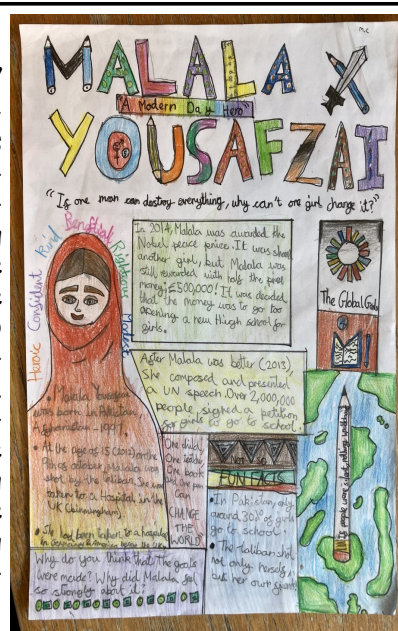 M.C
MALALA
"A Modern Day Hero"
YOUSAFZAI
"If one man can destroy everything, why can't one girl change it?"
Heroic Confident Kind Beneficial Righteous Modest
In 2014, Malala was awarded the
Nobel peace price. It was
another girl, but Malala was
still rewarded with half the
money; £500,000! It was decided
that the money was to go too
opening a new High school for
girls.
The Global Goals
After Malala was better (2013),
She composed and presented
a UN speech. Over 2,000,000
people signed a petition
for girls to go to school.
• Malala Yousafzai
was born in Pakistan,
Afghanistan - 1997.
• At the age of 15 (2012) on the
9th of october, Malala was
shot by the taliban. She was
taken to a Hospital in the
UK (Birmingham)
• She had been taken to a hospital
in
One child,
One teacher,
One book,
One pen
Can
CHANGE
THE
WORLD
FUN FACTS
• In Pakistan, only
around 30% of girls
go to school.
• The taliban shot
not only herself
but her own
Why do you think that the goals
were made? Why did Malala feel
so strongly about it?
If people were silent nothing would